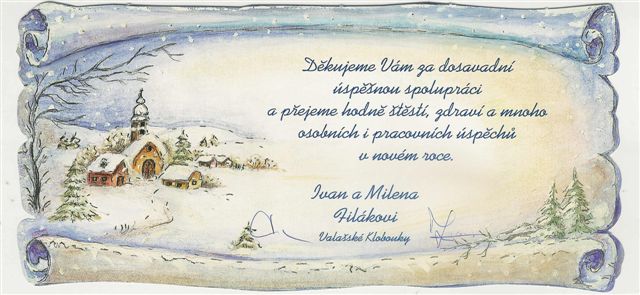 Děkujeme Vám za dosavadní
úspěšnou spolupráci
a přejeme hodně štěstí, zdraví a mnoho
osobních i pracovních úspěchů
v novém roce.
Ivan a Milena
Filákovi
Valašské Klobouky